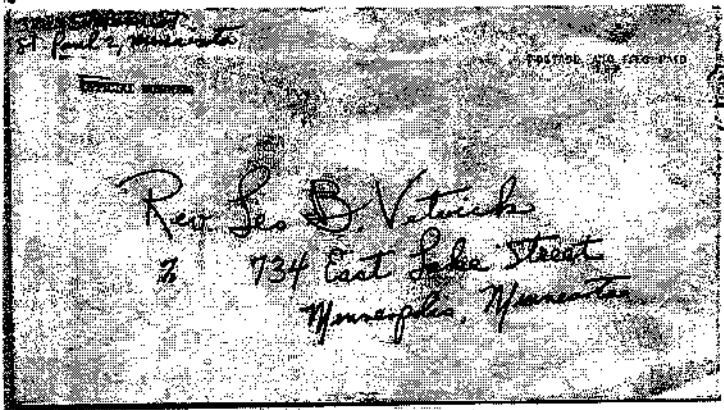 St. Paul 2, Minnesota
POSTAGE AND FEES PAID
OFFICIAL BUSINESS
Rev. Leo B. Vetvick
% 734 East Lake Street
Minneapolis, Minnesota